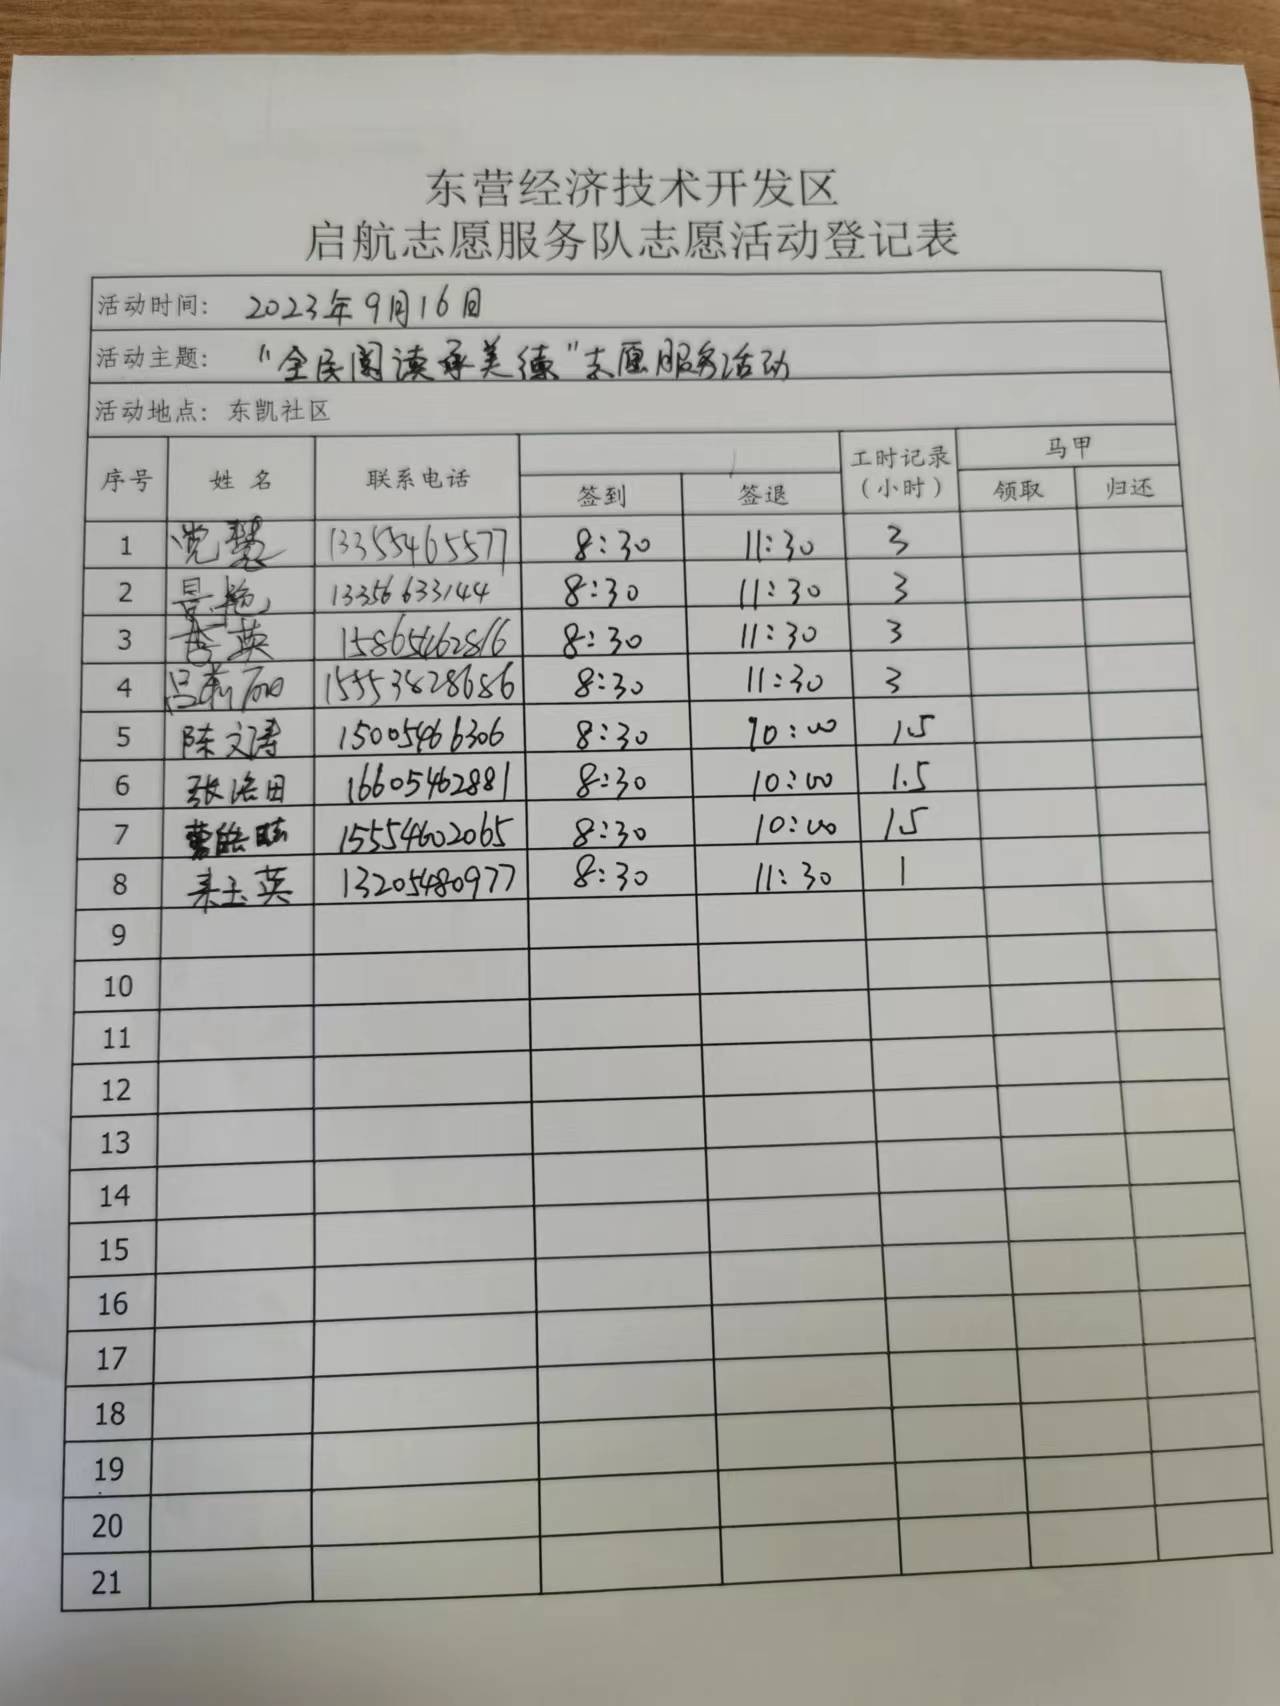 东营经济技术开发区
启航志愿服务队志愿活动登记表
活动时间: 2023年9月16日
活动主题: "全民阅读承美德"志愿服务活动
活动地点: 东凯社区
序号 姓名 联系电话 签到 签退 工时记录(小时) 马甲 领取 归还
1 党慧 13355465577 8:30 11:30 3
2 景艳 13356633144 8:30 11:30 3
3 李英 15865462816 8:30 11:30 3
4 吕莉丽 15553428686 8:30 11:30 3
5 陈文涛 15005466306 8:30 10:00 1.5
6 张浩田 16605462881 8:30 10:00 1.5
7 15554602065 8:30 10:00 1.5
8 玉英 13205480977 8:30 11:30 1
9
10
11
12
13
14
15
16
17
18
19
20
21